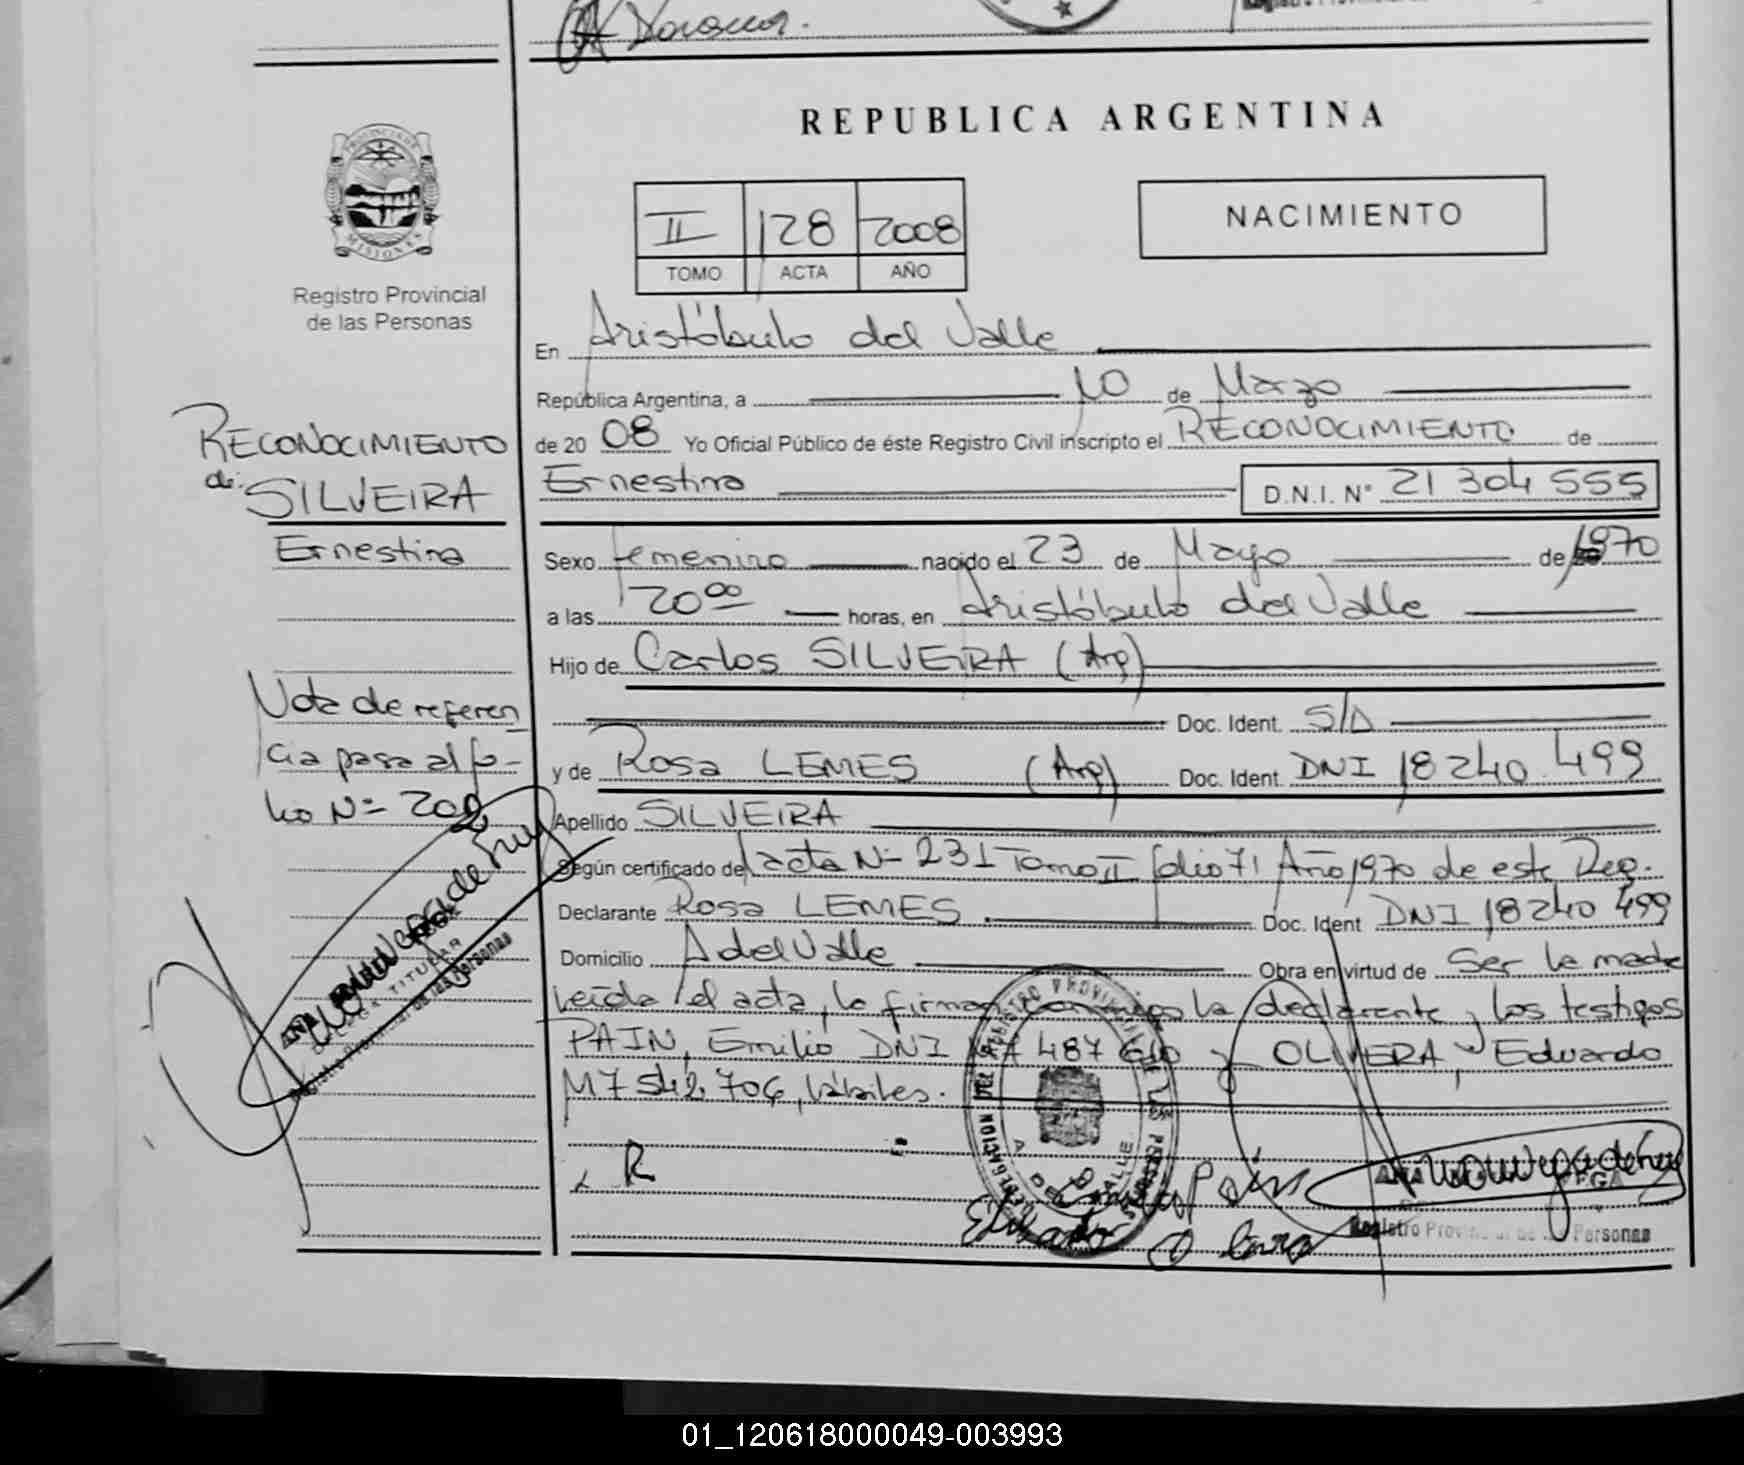 REPUBLICA ARGENTINA
PROVINCIA DE
MISIONES
Registro Provincial
de las Personas
II 128 2008
TOMO ACTA AÑO
NACIMIENTO
En Aristóbulo del Valle
República Argentina, a 10 de Marzo
de 20 08 Yo Oficial Público de éste Registro Civil inscripto el RECONOCIMIENTO de
Ernestina D.N.I. N° 21 304 555
Sexo femenino nacido el 23 de Mayo de 1970
a las 20 00 horas, en Aristóbulo del Valle
Hijo de Carlos SILVEIRA (Arg)
Doc. Ident. S/D
y de Rosa LEMES (Arg) Doc. Ident. DNI 18 240 499
Apellido SILVEIRA
Según certificado de acta N= 231 Tomo II folio 71 Año 1970 de este Reg.
Declarante Rosa LEMES Doc. Ident DNI 18 240 499
Domicilio A del Valle Obra en virtud de Ser la madre
Leída el acta, la firman conmigo la declarante y los testigos
PAIN, Emilio DNI 487 y OLIVERA, Eduardo
M7 542 706, hábiles.
R
Emilio Pain
Eduardo Olivera
Registro Provincial de las Personas
RECONOCIMIENTO
de:
SILVEIRA
Ernestina
Nota de referen
cia pasa al fo-
lio N= 200
TITULAR
Registro Provincial de las Personas
01_120618000049-003993